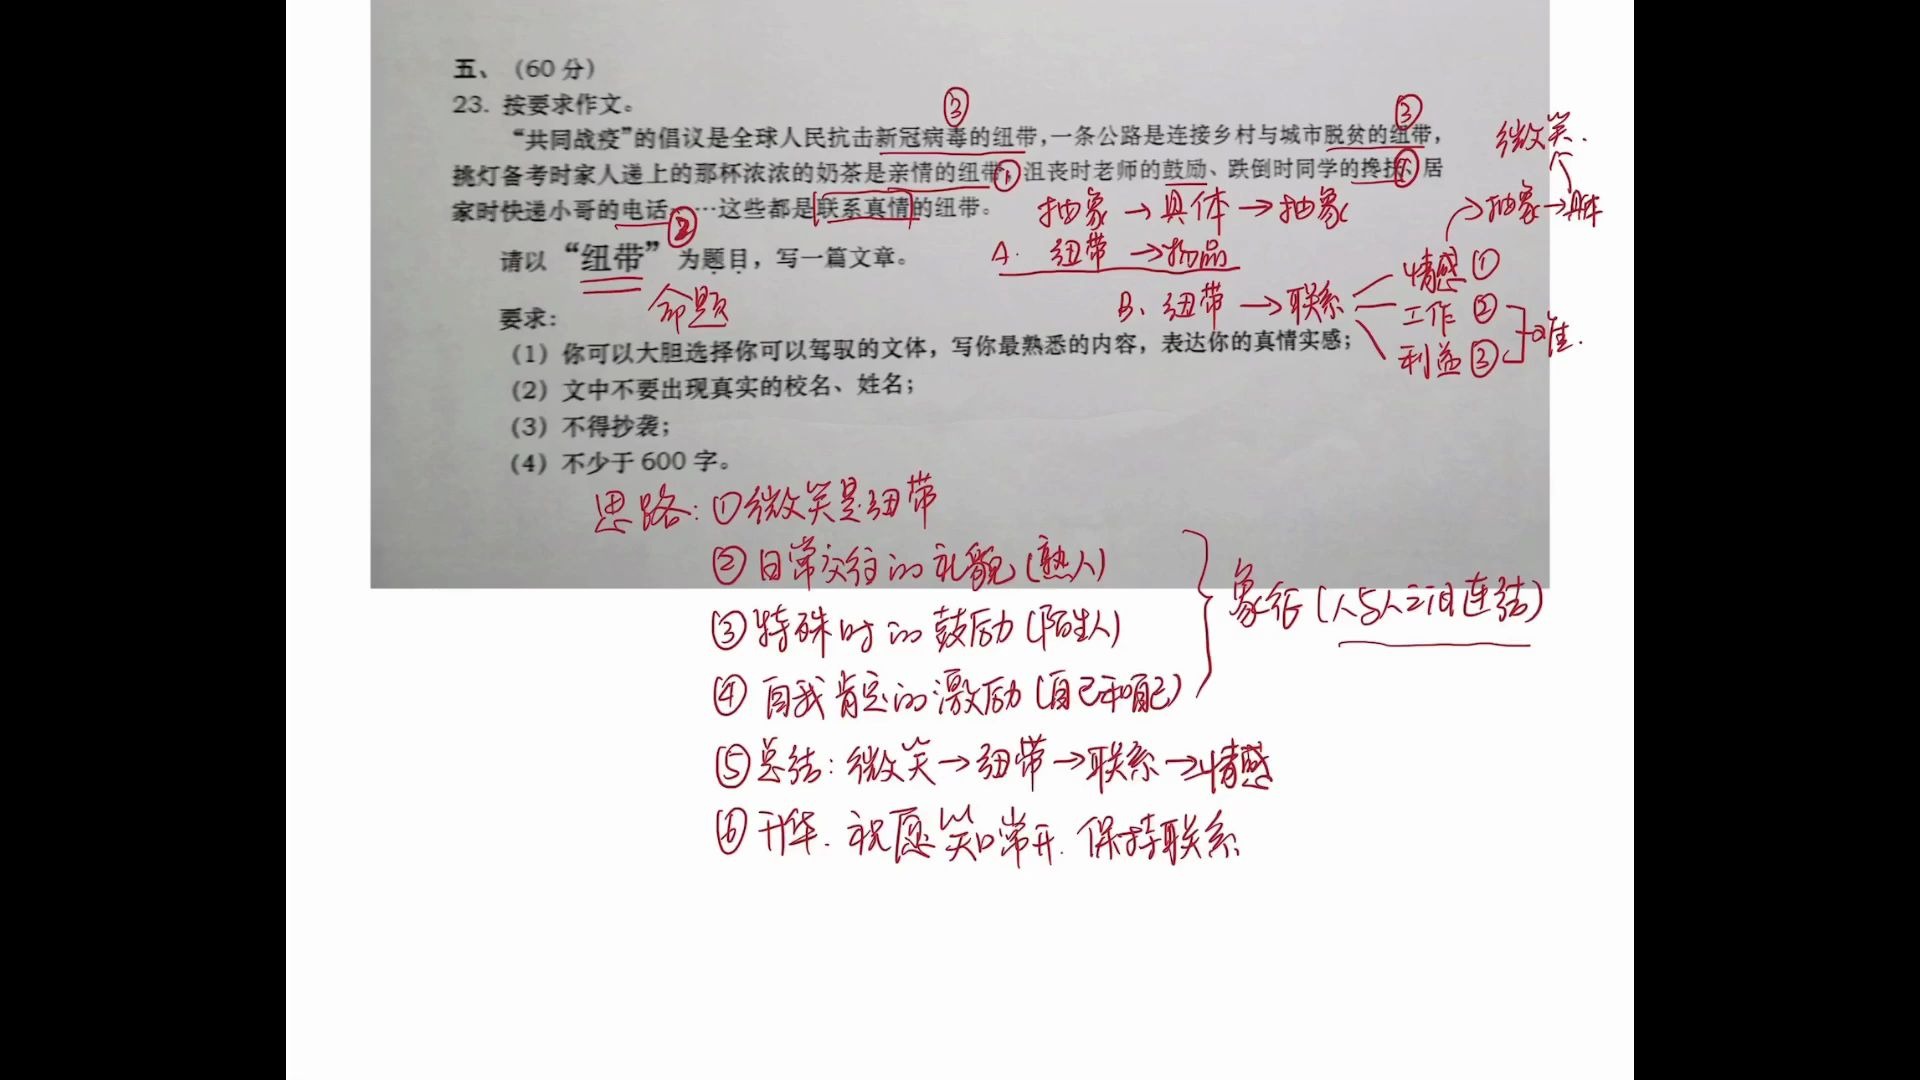 五、（60 分）
23. 按要求作文。
③ ③
“共同战疫”的倡议是全球人民抗击新冠病毒的纽带，一条公路是连接乡村与城市脱贫的纽带，
微笑.
挑灯备考时家人递上的那杯浓浓的奶茶是亲情的纽带，沮丧时老师的鼓励、跌倒时同学的搀扶、居
①
家时快递小哥的电话……这些都是联系真情的纽带。
②
抽象→具体→抽象
→抽象→具体
请以“纽带”为题目，写一篇文章。
A. 纽带→物品
命题
B、纽带→联系
情感①
工作②
利益③
难.
要求：
（1）你可以大胆选择你可以驾驭的文体，写你最熟悉的内容，表达你的真情实感；
（2）文中不要出现真实的校名、姓名；
（3）不得抄袭；
（4）不少于 600 字。
思路：①微笑是纽带
②日常交往的礼貌（熟人）
③特殊时的鼓励（陌生人）
④自我肯定的激励（自己和自己）
象征（人与人之间连结）
⑤总结：微笑→纽带→联系→情感
⑥升华. 祝愿笑口常开. 保持联系